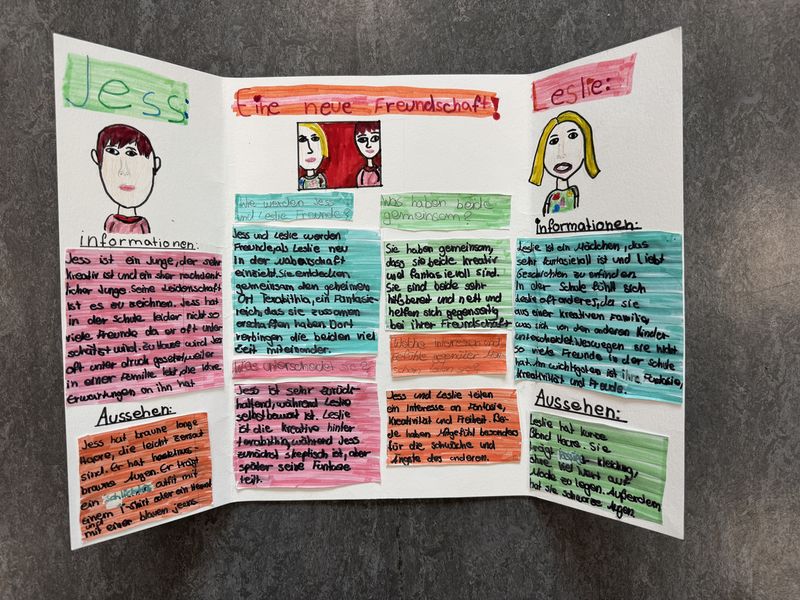 Jess:
Informationen:
Jess ist ein Junge, der sehr
Kreativ ist und ein sher nachdenk-
licher Junge. Seine Leidenschaft
ist es zu zeichnen. Jess hat
in der Schule leider nicht so
viele Freunde da er oft unter-
schätzt wird. Zu Hause wird Jess
oft unter druck gesetzt, weil er
in einer Familie lebt die
Erwartungen an ihn hat
Aussehen:
Jess hat braune lange
Haare, die leicht zersaust
sind. Er hat
braune Augen. Er trägt
ein schlichtes outfit mit
einem T-Shirt oder ein Hemd
und
mit einer blauen jeans.
Eine neue Freundschaft!
Wie werden Jess
und Leslie Freunde?
Jess und Leslie werden
Freunde, als Leslie neu
in der
einzieht. Sie entdecken
gemeinsam den geheimen
Ort Terabithia, ein Fantasie-
reich, das sie zusammen
erschaffen haben. Dort
verbingen die beiden viel
Zeit miteinander.
Was unterscheidet sie?
Jess ist sehr zurück-
haltend, während Leslie
selbstbewusst ist. Leslie
ist die Kreative hinter
terabithia, während Jess
zunächst skeptisch ist, aber
später seine Fantasie
teilt.
Was haben beide
gemeinsam?
Sie haben gemeinsam,
dass sie beide kreativ
und fantasievoll sind.
Sie sind beide sehr
hilfsbereit und nett und
helfen sich gegenseitig
bei ihrer Freundschaft
Welche Interessen und
Gefühle gegenüber
Jess und Leslie teilen
ein Interesse an Fantasie,
Kreativität und Freiheit. Bei-
de haben Mitgefühl besonders
für die Schwäche und
Ängste des anderen.
Leslie:
Informationen:
Leslie ist ein Mädchen, das
sehr fantasievoll ist und liebt
Geschichten zu erfinden
In der Schule fühlt sich
Leslie oft anderes, da sie
aus einer kreativen Familie,
was sich von den anderen Kinder
unterscheidet. Deswegen sie nicht
so viele Freunde in der Schule
hat. Am wichtigsten ist ihre Fantasie,
Kreativität und Freude.
Aussehen:
Leslie hat kurze
Blond Haare. Sie
trägt Kleidung,
ohne viel Wert auf
Mode zu legen. Außerdem
hat sie schwarze Augen